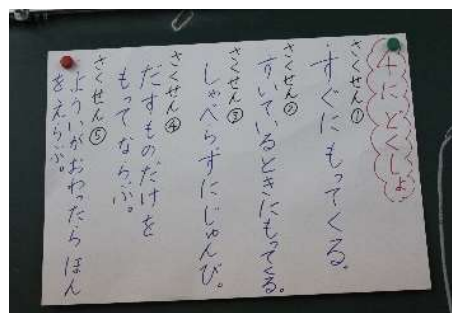 十にどくしょ
さくせん①
すぐにもってくる。
さくせん②
すいているときにもってくる。
さくせん③
しゃべらずにじゅんび。
さくせん④
だすものだけを
もってならぶ。
さくせん⑤
よういがおわったらほん
をえらぶ。